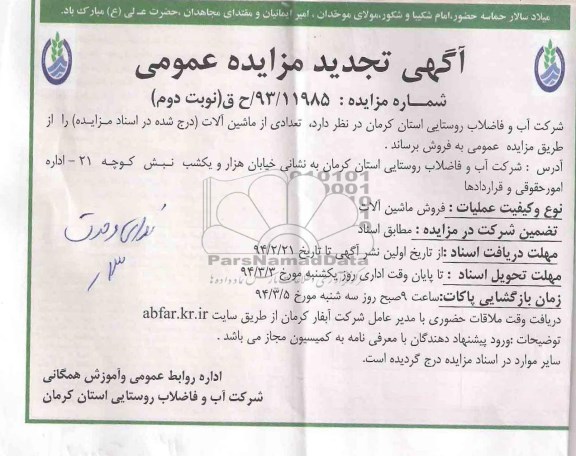 میلاد سالار حماسه حضور،امام شکیبا و شکور،مولای موحدان ، امیر ایمانیان و مقتدای مجاهدان ،حضرت عـلی (ع) مبارک باد.
آگهی تجدید مزایده عمومی
شمـــاره مزایده : ۹۳/۱۱۹۸۵/ح ق(نوبت دوم)
شرکت آب و فاضلاب روستایی استان کرمان در نظر دارد، تعدادی از ماشین آلات (درج شده در اسناد مـزایـده) را از
طریق مزایده عمومی به فروش برساند .
آدرس : شرکت آب و فاضلاب روستایی استان کرمان به نشانی خیابان هزار و یکشب نبـش کـوچـه ۲۱ - اداره
امورحقوقی و قراردادها
نوع وکیفیت عملیات : فروش ماشین آلات
تضمین شرکت در مزایده : مطابق اسناد
مهلت دریافت اسناد :از تاریخ اولین نشر آگهی تا تاریخ ۹۴/۲/۲۱
مهلت تحویل اسناد : تا پایان وقت اداری روز یکشنبه مورخ ۹۴/۳/۳
زمان بازگشایی پاکات:ساعت ۹صبح روز سه شنبه مورخ ۹۴/۳/۵
دریافت وقت ملاقات حضوری با مدیر عامل شرکت آبفار کرمان از طریق سایت abfar.kr.ir
توضیحات :ورود پیشنهاد دهندگان با معرفی نامه به کمیسیون مجاز می باشد .
سایر موارد در اسناد مزایده درج گردیده است.
اداره روابط عمومی وآموزش همگانی
شرکت آب و فاضلاب روستایی استان کرمان
ندای وحدت
ParsNamadData